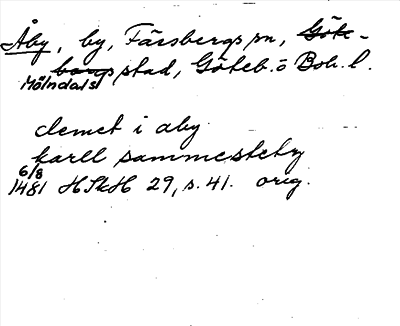 Åby, by, Färsbergs sn, Göte-
borgs stad, Göteb. o Boh. l.
Mölndals
clemet i aby
karll sammestety
6/8
1481 HSkH 29, s. 41. orig.